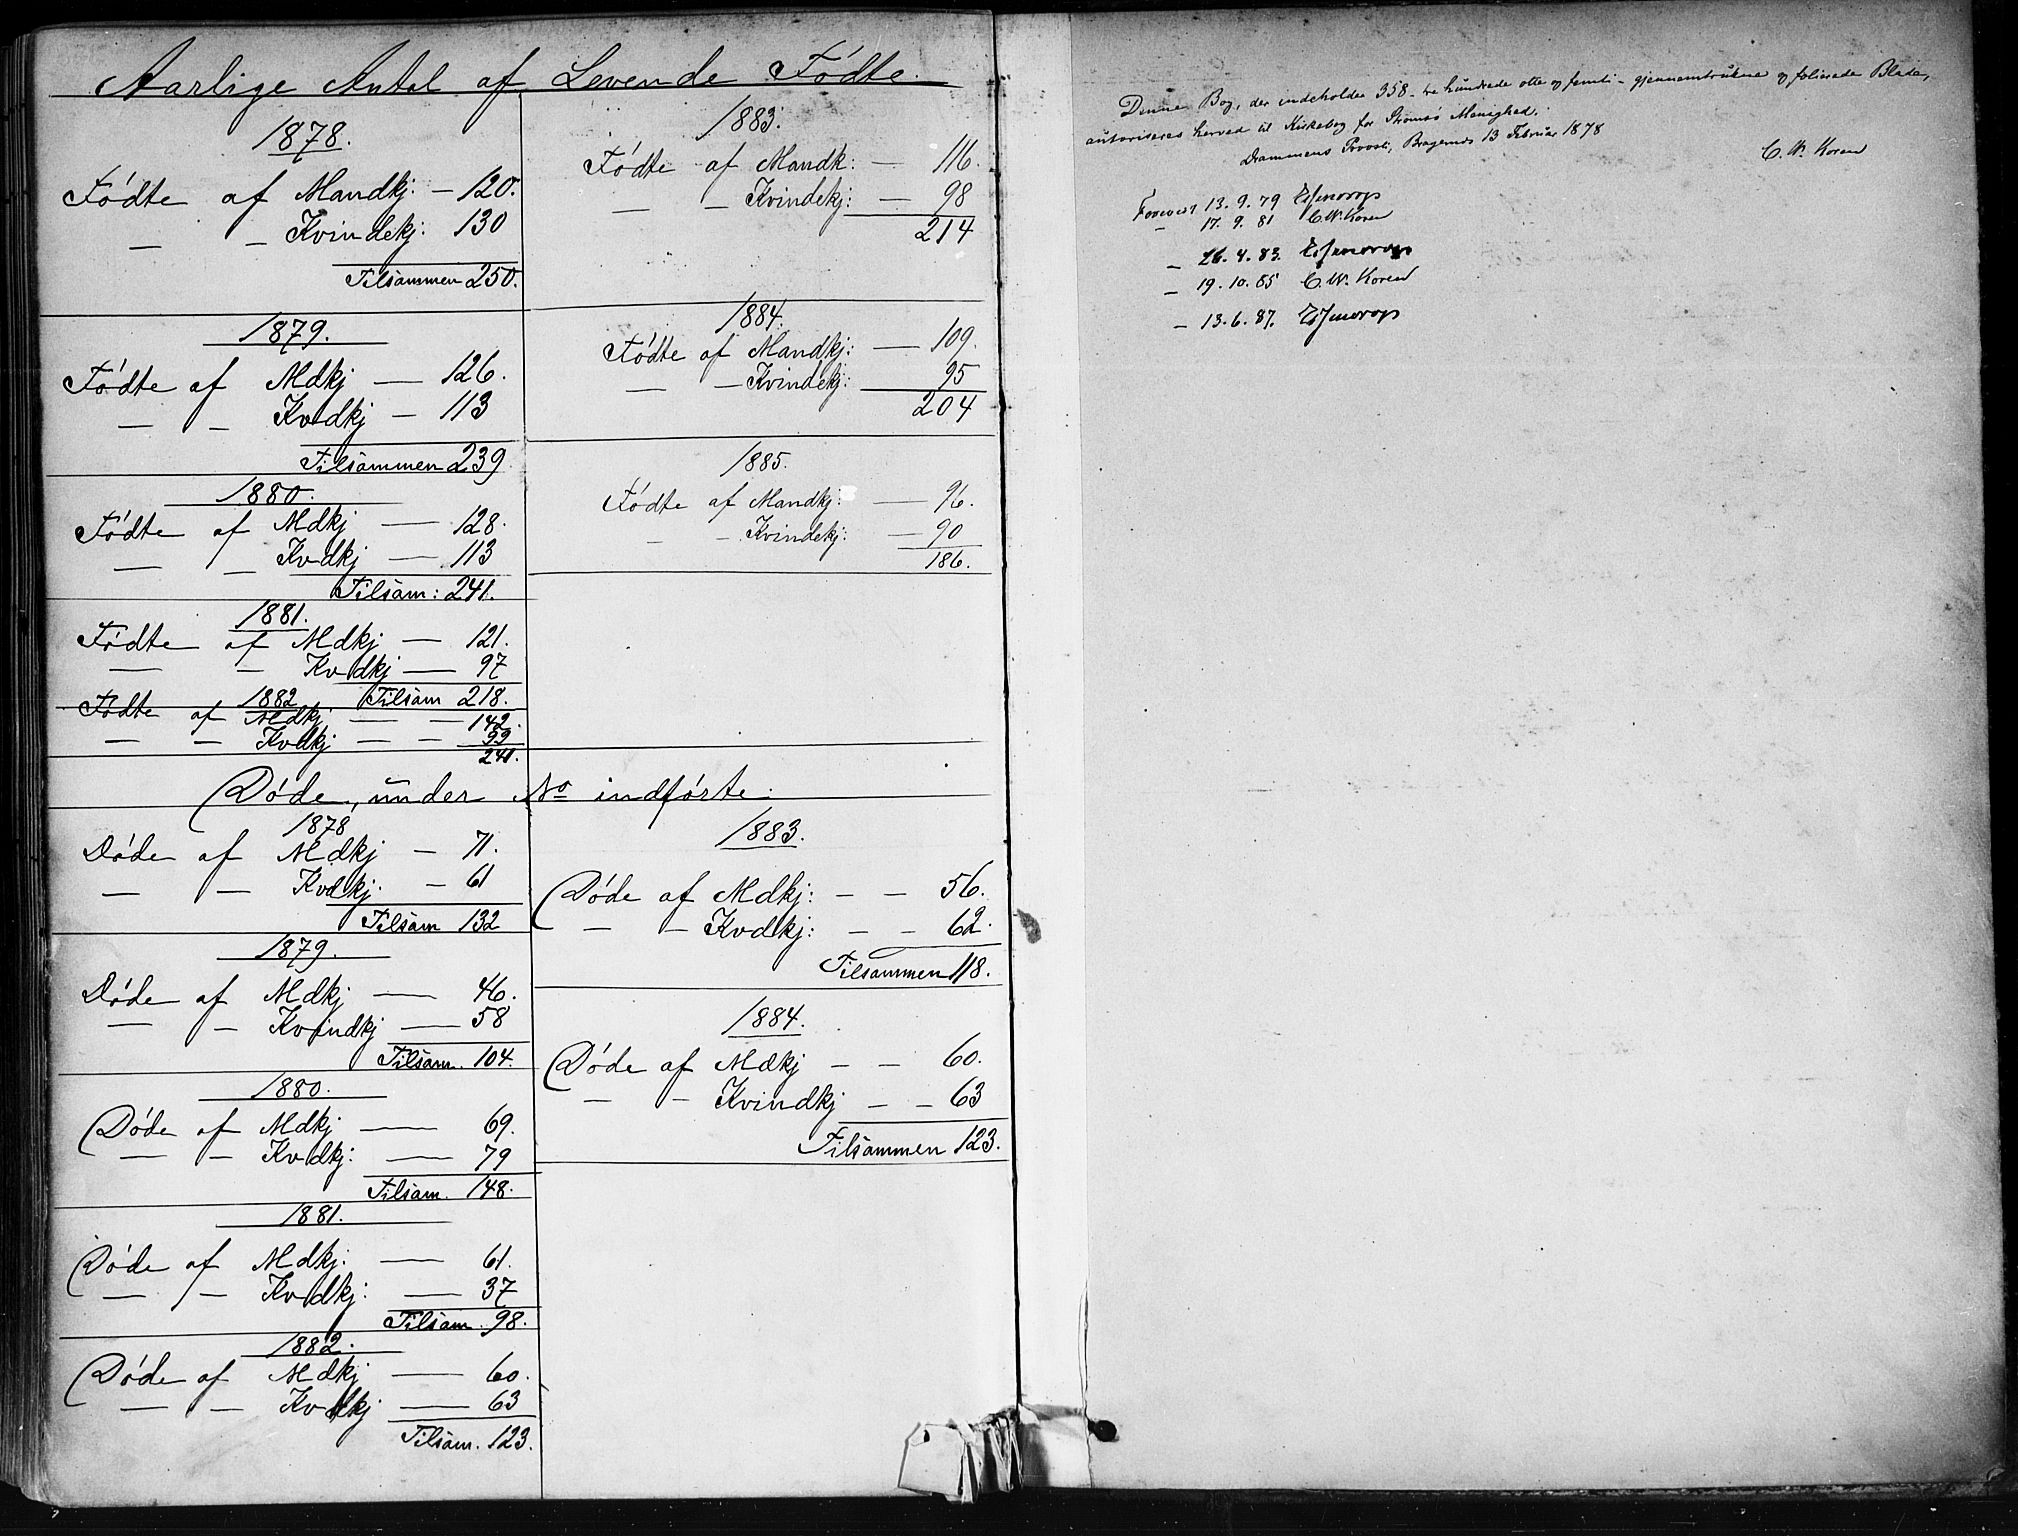 Aarlige Antal af Levende Fødte.
1878.
Fødte af Mandkj: — 120.
— — Kvindekj: 130
Tilsammen 250.
1879.
Fødte af Mdkj — 126.
— — Kvdkj — 113
Tilsammen 239
1880.
Fødte af Mdkj — 128.
— — Kvdkj — 113
Tilsam: 241.
1881.
Fødte af Mdkj — 121.
— — Kvdkj — 97
Tilsam 218.
1882
Fødte af Mdkj — — 142.
— — Kvdkj — — 99
241.
1883.
Fødte af Mandk: — 116.
— — Kvindekj: — 98
214
1884.
Fødte af Mandkj: — 109.
— — Kvindekj: — 95
204
1885.
Fødte af Mandkj: — 96.
— — Kvindekj: — 90
186.
Døde, under No indførte.
1878
Døde af Mdkj — 71.
— — Kvdkj. — 61
Tilsam 132
1879.
Døde af Mdkj — 46.
— — Kvindkj — 58
Tilsam. 104.
1880.
Døde af Mdkj — 69.
— — Kvdkj: — 79
Tilsam. 148.
1881.
Døde af Mdkj: — 61.
— — Kvdkj: — 37
Tilsam. 98.
1882.
Døde af Mdkj — 60.
— — Kvdkj — 63
Tilsam. 123.
1883.
Døde af Mdkj: — — 56.
— — Kvdkj: — — 62.
Tilsammen 118.
1884.
Døde af Mdkj — — 60.
— — Kvindkj — — 63
Tilsammen 123.
Denne Bog, der indeholder 358 - tre hundrede otte og femti - gjennemtrukne og folierede Blade,
autoriseres herved til Kirkebog for Strømsø Menighed.
Drammens Provsti, Bragernes 13 Februar 1878
C. W. Koren
Forevist 13.9.79
— 17.9.81 C. W. Koren
— 26.4.83.
— 19.10.85 C. W. Koren
— 13.6.87.